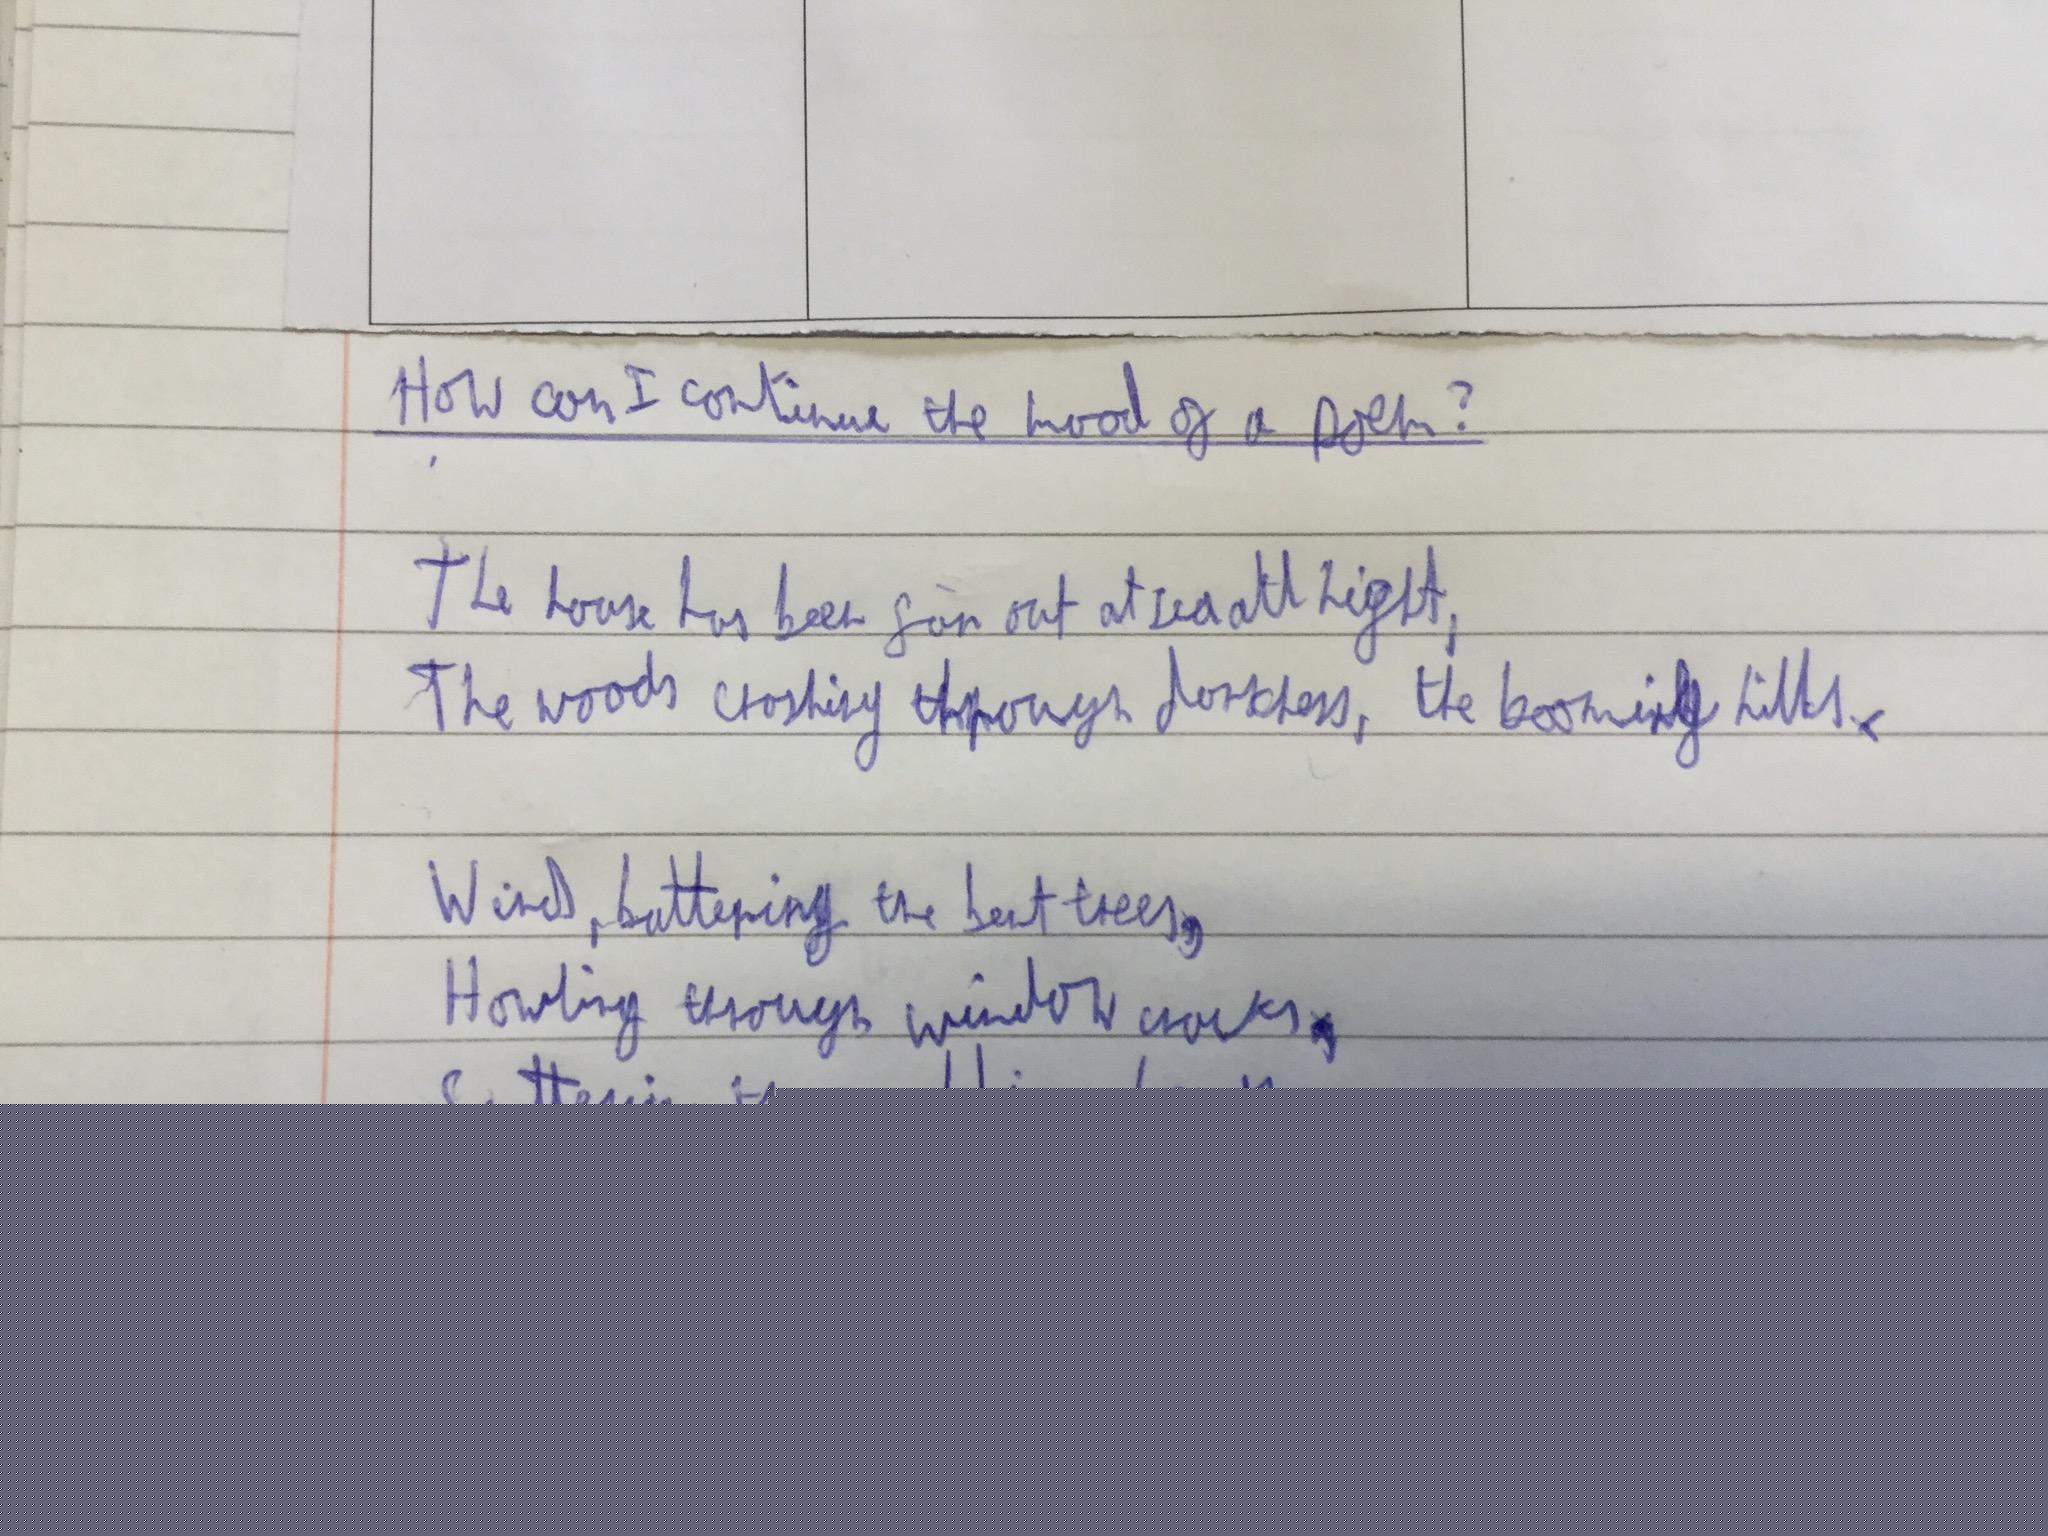 How can I continue the mood of a poem?
The house has been far out at sea all night,
The woods crashing through darkness, the booming hills.
Wind, battering the bent trees,
Howling through window cracks,